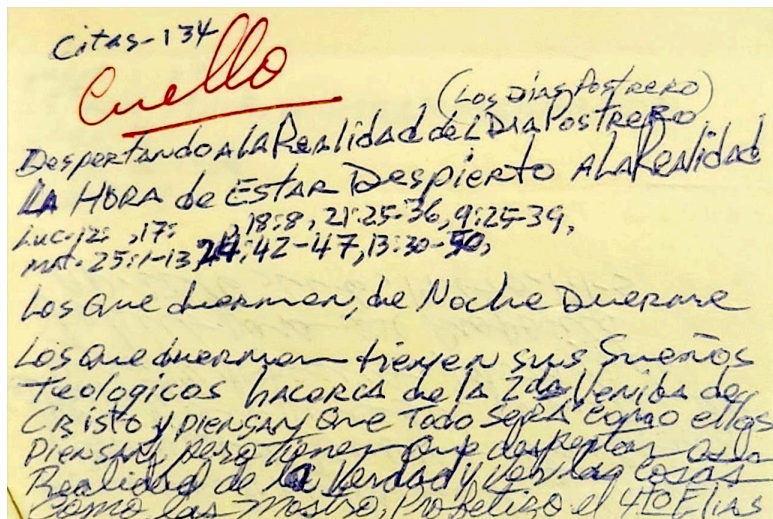 Citas-134
Cuello
(Los Días Postrero)
Despertando A LA Realidad del Dia Postrero
LA HORA de ESTAR Despierto A LA Realidad
Luc-12: ,17: , 18:8, 21:25-36, 9:25-39,
MAT-25:1-13, 24:42-47, 13:30-50,
Los que duermen, de Noche Duerme
Los que duermen tienen sus Sueños
Teologicos hacerca de la 2da Venida de
Cristo y piensan que Todo SERÁ como ellos
Piensan, pero tienen que despertar a la
Realidad de la Verdad y ver las cosas
Como las Mostro, Profetizo el 4to Elias